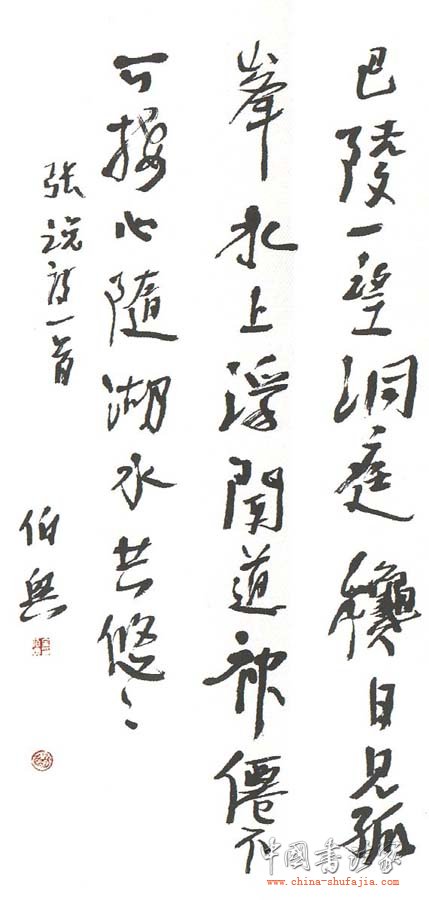 巴陵一望洞庭龝日見孤
峯水上浮聞道神僊不
可接心隨湖水共悠〻
张説詩一首
伯
中國書法家
www.china-shufajia.com